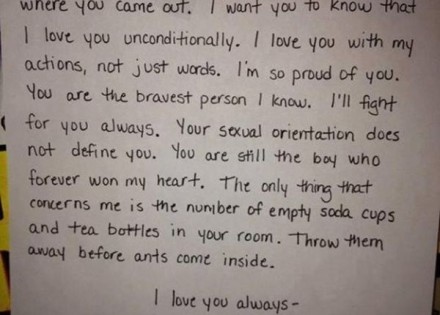 where you came out. I want you to know that
I love you unconditionally. I love you with my
actions, not just words. I'm so proud of you.
You are the bravest person I know. I'll fight
for you always. Your sexual orientation does
not define you. You are still the boy who
forever won my heart. The only thing that
concerns me is the number of empty soda cups
and tea bottles in your room. Throw them
away before ants come inside.
I love you always-